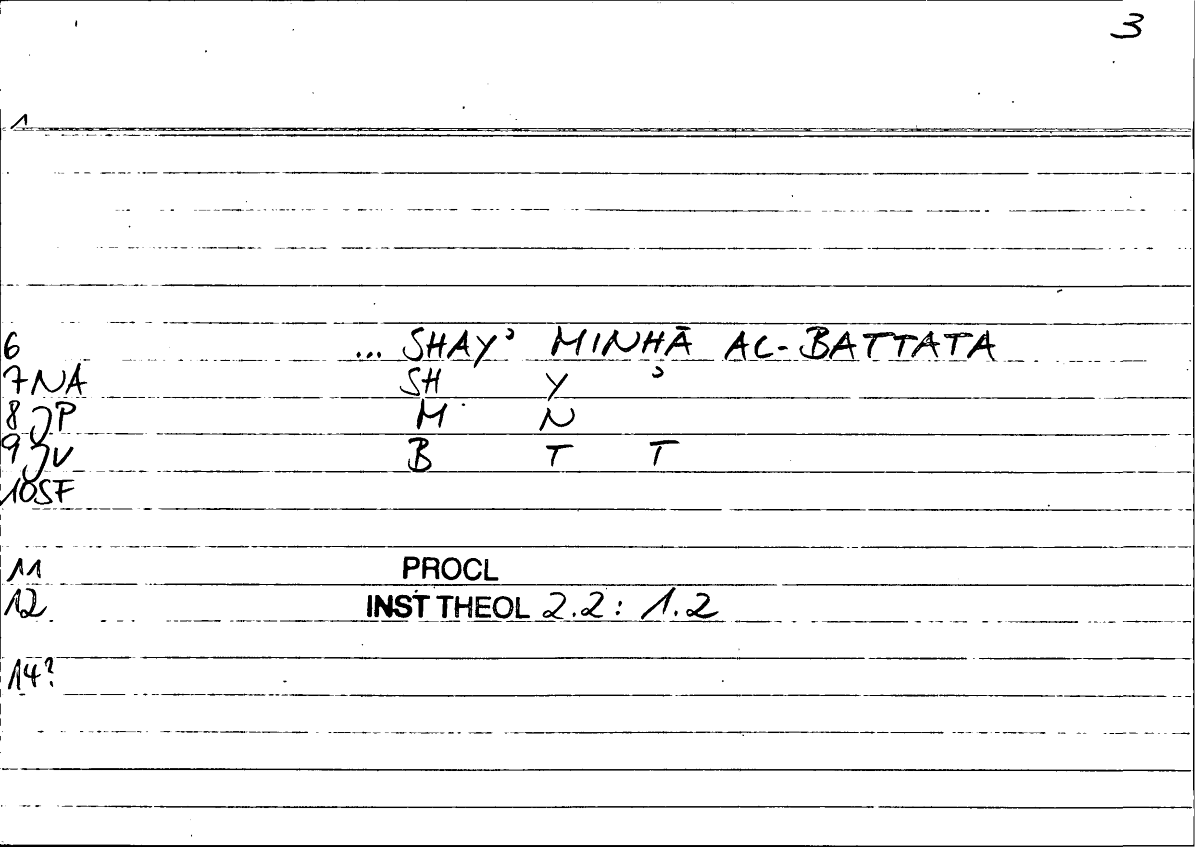 3
1
6 ... SHAYʾ MINHĀ AL-BATTATA
7 NA SH Y ʾ
8 JP M N
9 JV B T T
10 SF
11 PROCL
12 INST THEOL 2.2: 1.2
14?